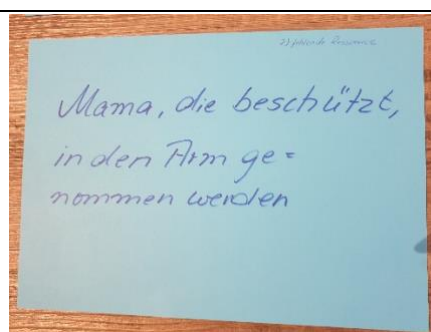 2) fehlende Ressource
Mama, die beschützt,
in den Arm ge=
nommen werden